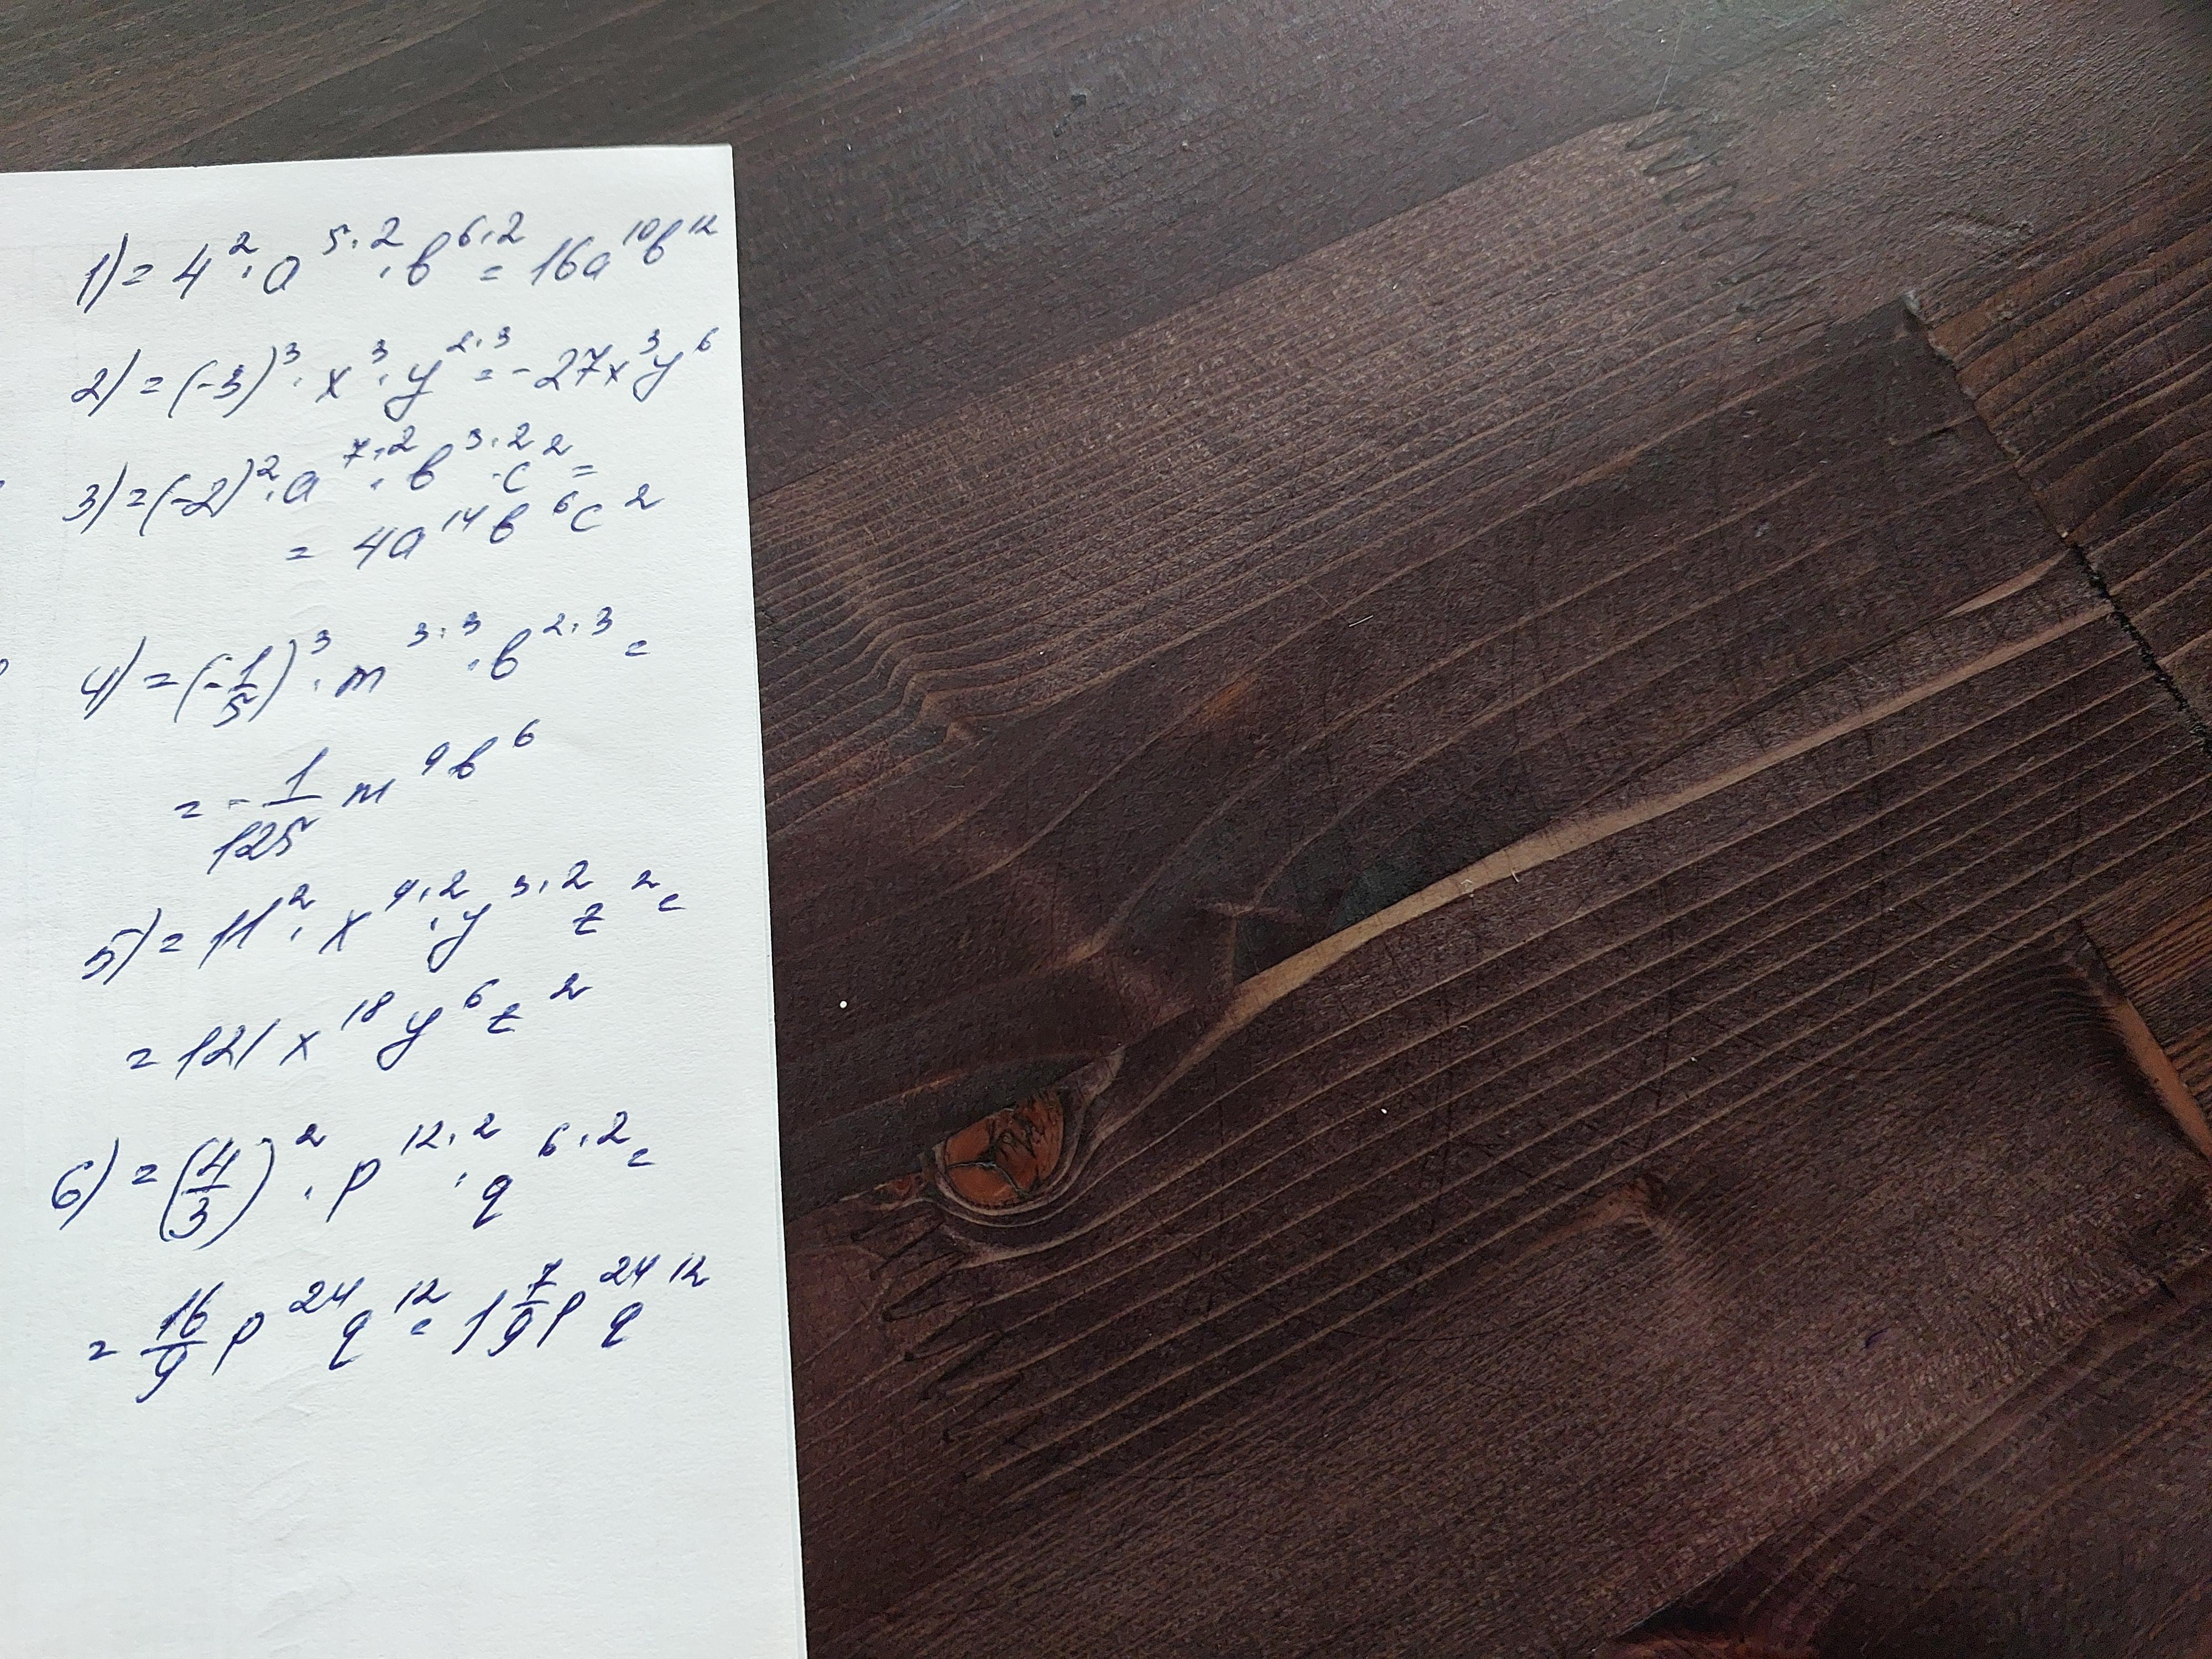 1) = 4² · a⁵·² · b⁶·² = 16a¹⁰b¹²
2) = (-3)³ · x³ · y²·³ = -27x³y⁶
3) = (-2)² · a⁷·² · b³·² · c² =
= 4a¹⁴b⁶c²
4) = (-1/5)³ · m³·³ · b²·³ =
= -1/125 m⁹b⁶
5) = 11² · x⁹·² · y³·² z² =
= 121x¹⁸y⁶z²
6) = (4/3)² · p¹²·² · q⁶·² =
= 16/9 p²⁴q¹² = 1 7/9 p²⁴q¹²